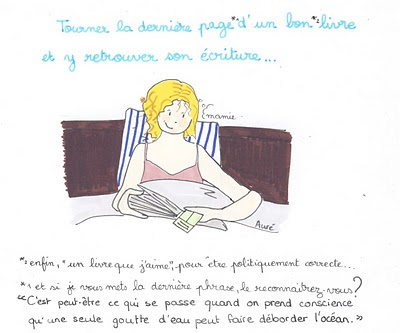 Tourner la dernière page*¹ d'un bon*² livre
et y retrouver son écriture...
Emamie
Auré
*² enfin, "un livre que j'aime", pour être politiquement correcte...
*¹ et si je vous mets la dernière phrase, le reconnaîtrez-vous?
"C'est peut-être ce qui se passe quand on prend conscience
qu'une seule goutte d'eau peut faire déborder l'océan."